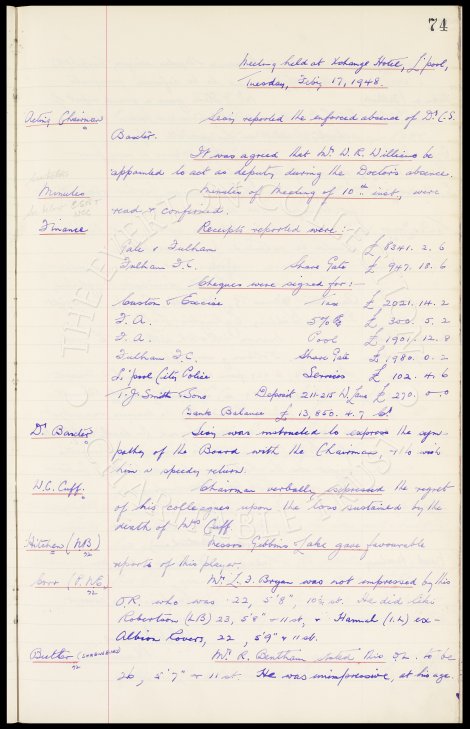 74
Meeting held at Xchange Hotel, L'pool,
Tuesday, Feb'y 17, 1948.
Acting Chairman
Secy reported the enforced absence of Dr C.S.
Baxter.
It was agreed that Mr. W. R. Williams be
appointed to act as deputy during the Doctor's absence.
Minutes
Minutes of Meeting of 10th inst, were
read & confirmed.
Finance
Receipts reported were:
Gate v Fulham £ 8341. 2. 6
Fulham F.C. Share Gate £ 947. 18. 6
Cheques were signed for:-
Custom & Excise Tax £ 2021. 14. 2
F.A. 5% £ 300. 5. 2
F.A. Pool £ 1901. 12. 8
Fulham F.C. Share Gate £ 1980. 0. 2
L'pool City Police Services £ 102. 4. 6
T.J. Smith & Sons Deposit 211-215 W. Lane £ 270. 0. 0
Bank Balance £ 13,850. 4. 7 Cr
Dr. Baxter
Secy was instructed to express the sym-
pathy of the Board with the Chairman, & to wish
him a speedy return.
W.C. Cuff.
Chairman verbally expressed the regret
of his colleagues upon the loss sustained by the
death of Mrs Cuff.
Hitchen (NB)
Messrs Gibbins & Jake gave favourable
reports of this player.
Mr. L. F. Bryan was not impressed by this
O.R. who was 22, 5'8", 10½ st. He did like
Robertson (LB) 23, 5'8" & 11 st, & Hannah (I.L) ex-
Albion Rovers, 22, 5'9" & 11 st.
Butler
Mr. R. Bentham noted this O.L. to be
26, 5'7" & 11 st. He was unimpressive, at his age.
THE EVERTON COLLECTION
CHARITABLE TRUST